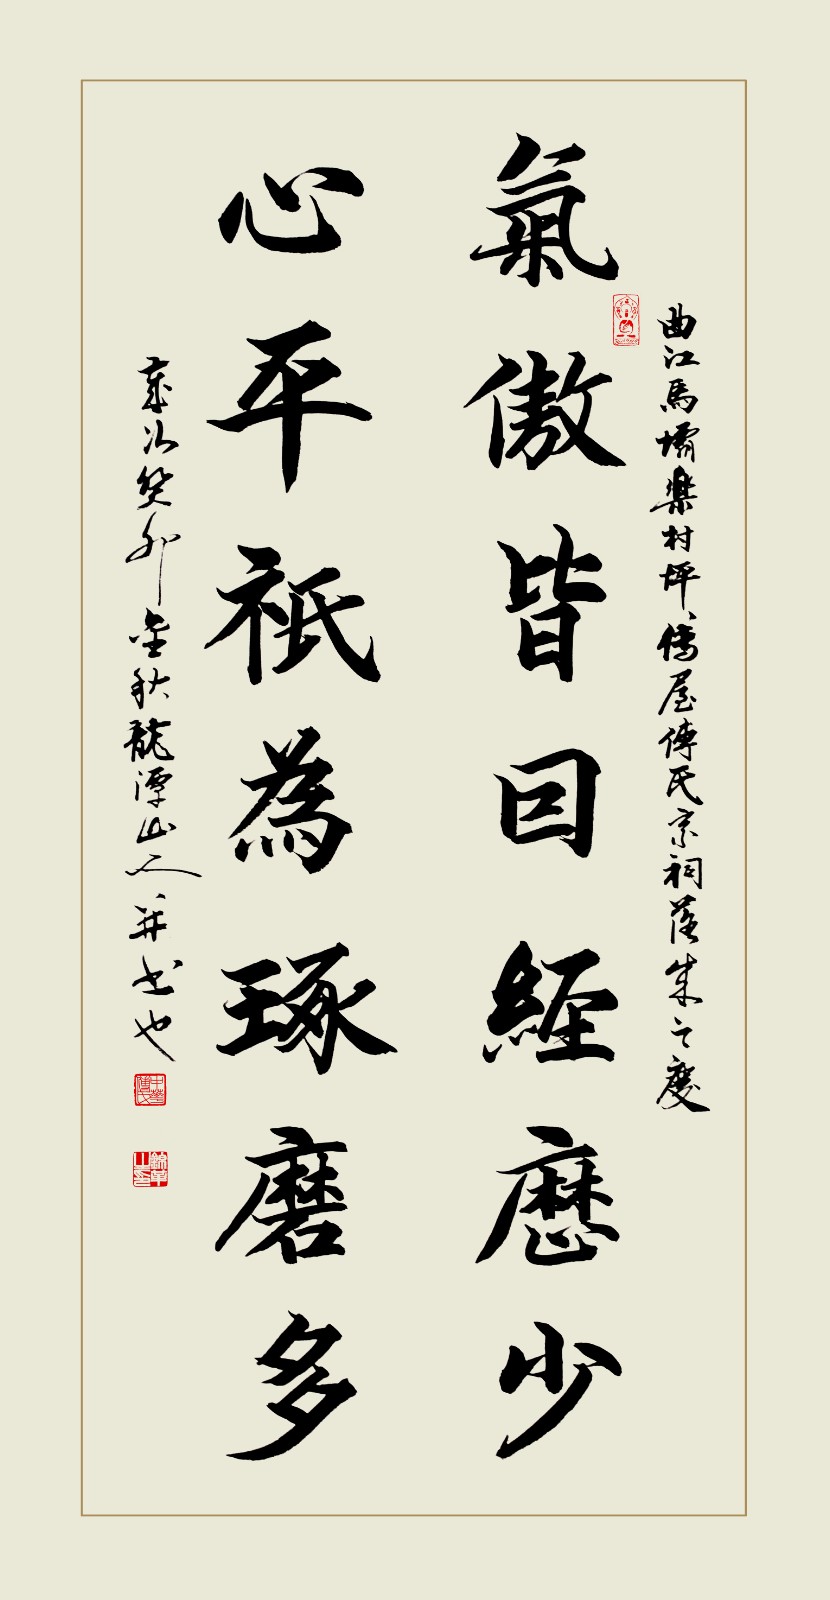 曲江馬壩樂村坪僑屋傅氏宗祠落成之慶
氣傲皆因經歷少
心平祇為琢磨多
歲次癸卯金秋龍潭山人並书也